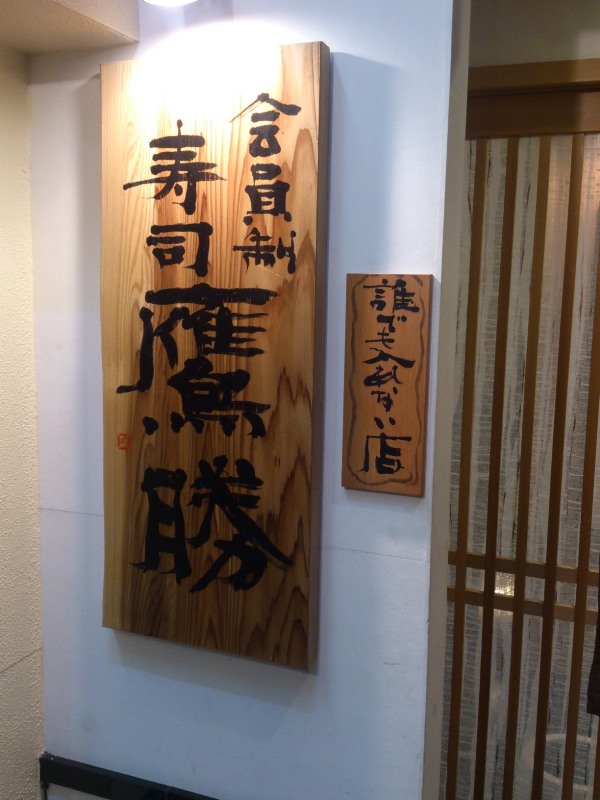 会員制
寿司 鷹勝
誰でも入れない店